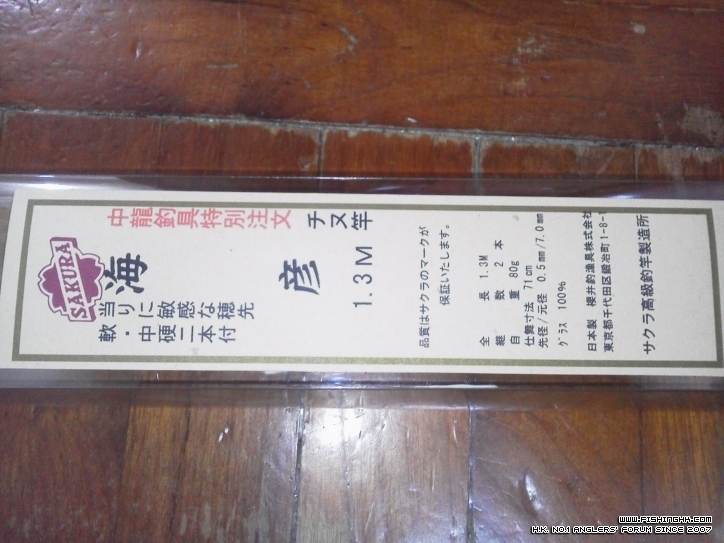 SAKURA
中龍釣具特別注文
チヌ竿
海彦
1.3M
当りに敏感な穂先
軟・中硬二本付
品質はサクラのマークが
保証いたします。
全長 1.3M
継数 2本
自重 80g
仕舞寸法 71cm
先径/元径 0.5mm/7.0mm
グラス 100%
日本製 櫻井釣漁具株式会社
東京都千代田区鍛冶町1-8-1
サクラ高級釣竿製造所
WWW.FISHINGHK.COM
H.K. NO.1 ANGLERS' FORUM SINCE 2007